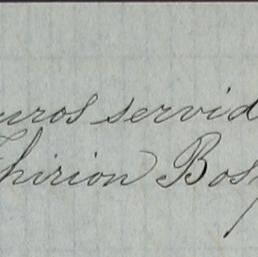 uros servid
Thirion Bosq